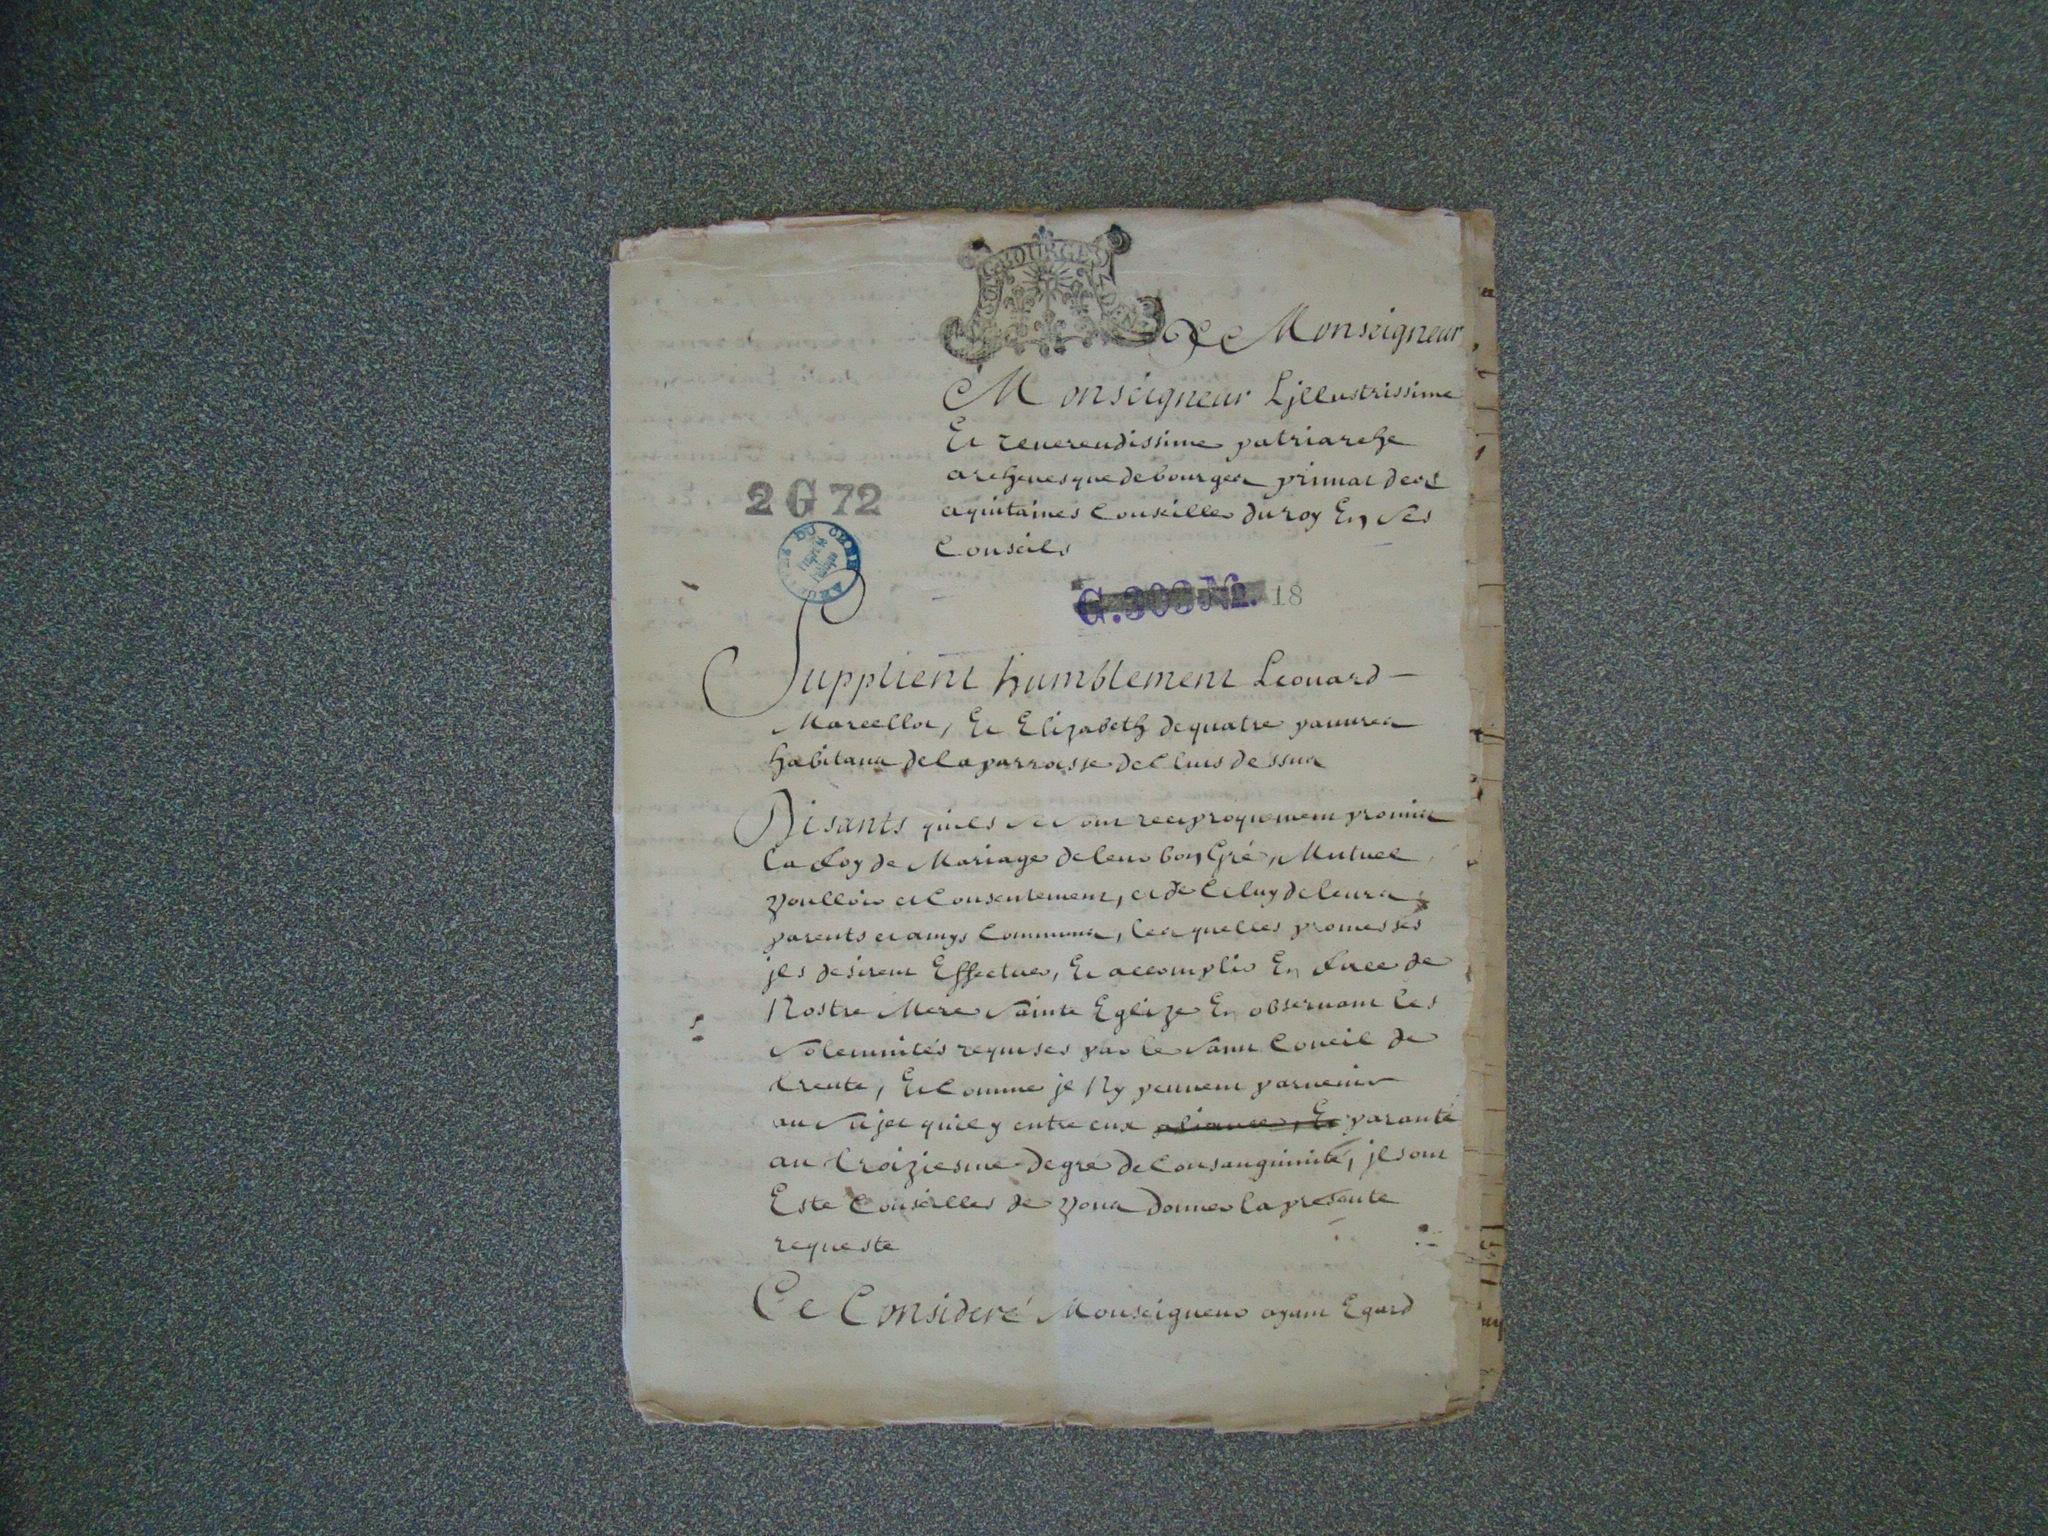 BOURGES
A Monseigneur
Monseigneur Ljllustrissime
Et reuerendissime patriarche
archeuesque de bourges primat des
aquitaines Conseiller du roy En ses
Conseils
2 G 72
G. 303 No. 18
Supplient humblement Leonard
Marcellot, Et Elizabeth de quatre pauures
habitans de la parroisse de Cluis dessus
Disants quils se sont reciproquement promis
la foy de Mariage de leur bon Gré, Mutuel
voulloir et Consentement, et de Celuy de leurs
parents et amys Communs, lesquelles promesses
jls desirent Effectuer, Et accomplir En face de
Nostre Mere Sainte Eglize En obseruant les
solemnités requises par le saint Concil de
trente, Et Comme jl Ny peuuent paruenir
au sujet quil y entre eux aliance, Et paranté
au troiziesme degré de Consanguinité, jls ont
Esté Conseilles de vous donner la presente
requeste
Ce Consideré Monseigneur ayant Egard